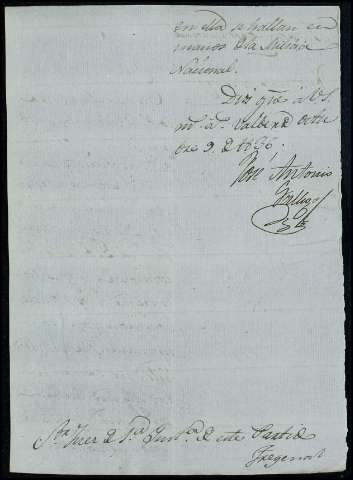 en ella se hallan en
manos de la Milicia
Nacional.
Dios gue. á V.S.
ms. as. Octu
bre 9. de 1836.
José Antonio
Sor. Juez de 1ra. Insta. de este Partido
Fregenal